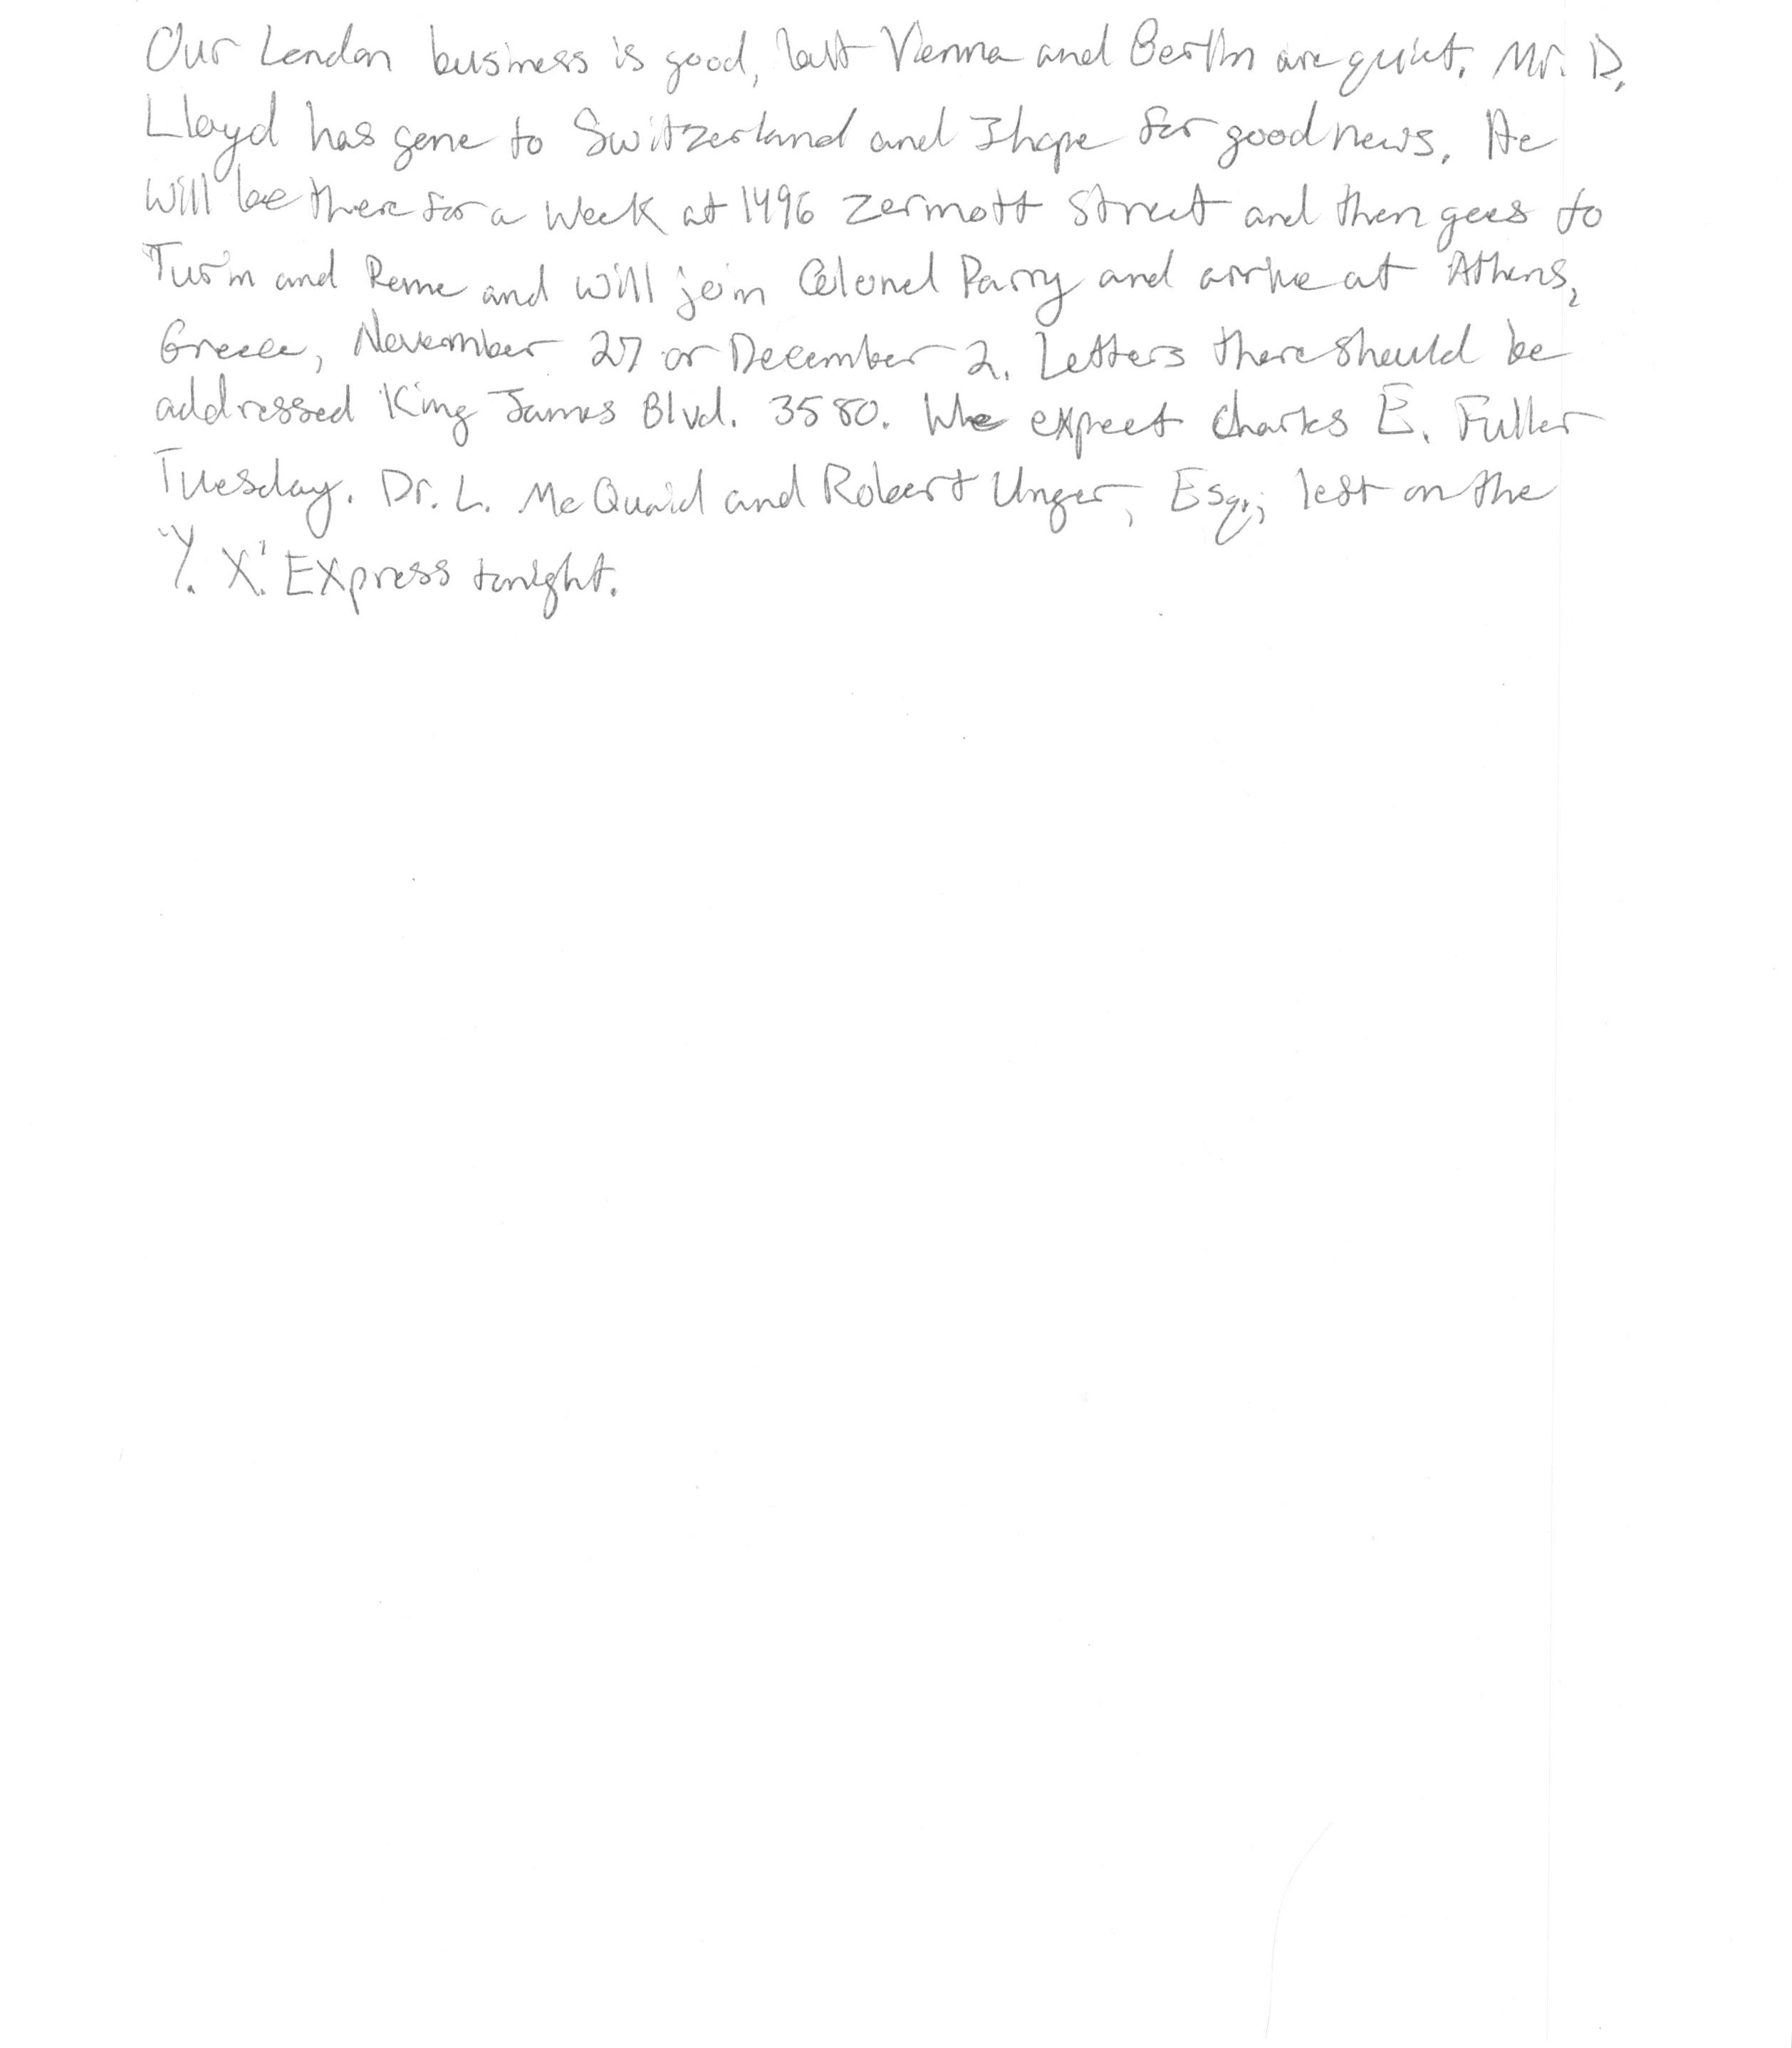 Our London business is good, but Vienna and Berlin are quiet. Mr. D.
Lloyd has gone to Switzerland and I hope for good news. He
will be there for a week at 1496 Zermott Street and then goes to
Turin and Rome and will join Colonel Parry and arrive at Athens,
Greece, November 27 or December 2. Letters there should be
addressed King James Blvd. 3580. We expect Charles E. Fuller
Tuesday. Dr. L. McQuaid and Robert Unger, Esq., left on the
'Y. X.' Express tonight.